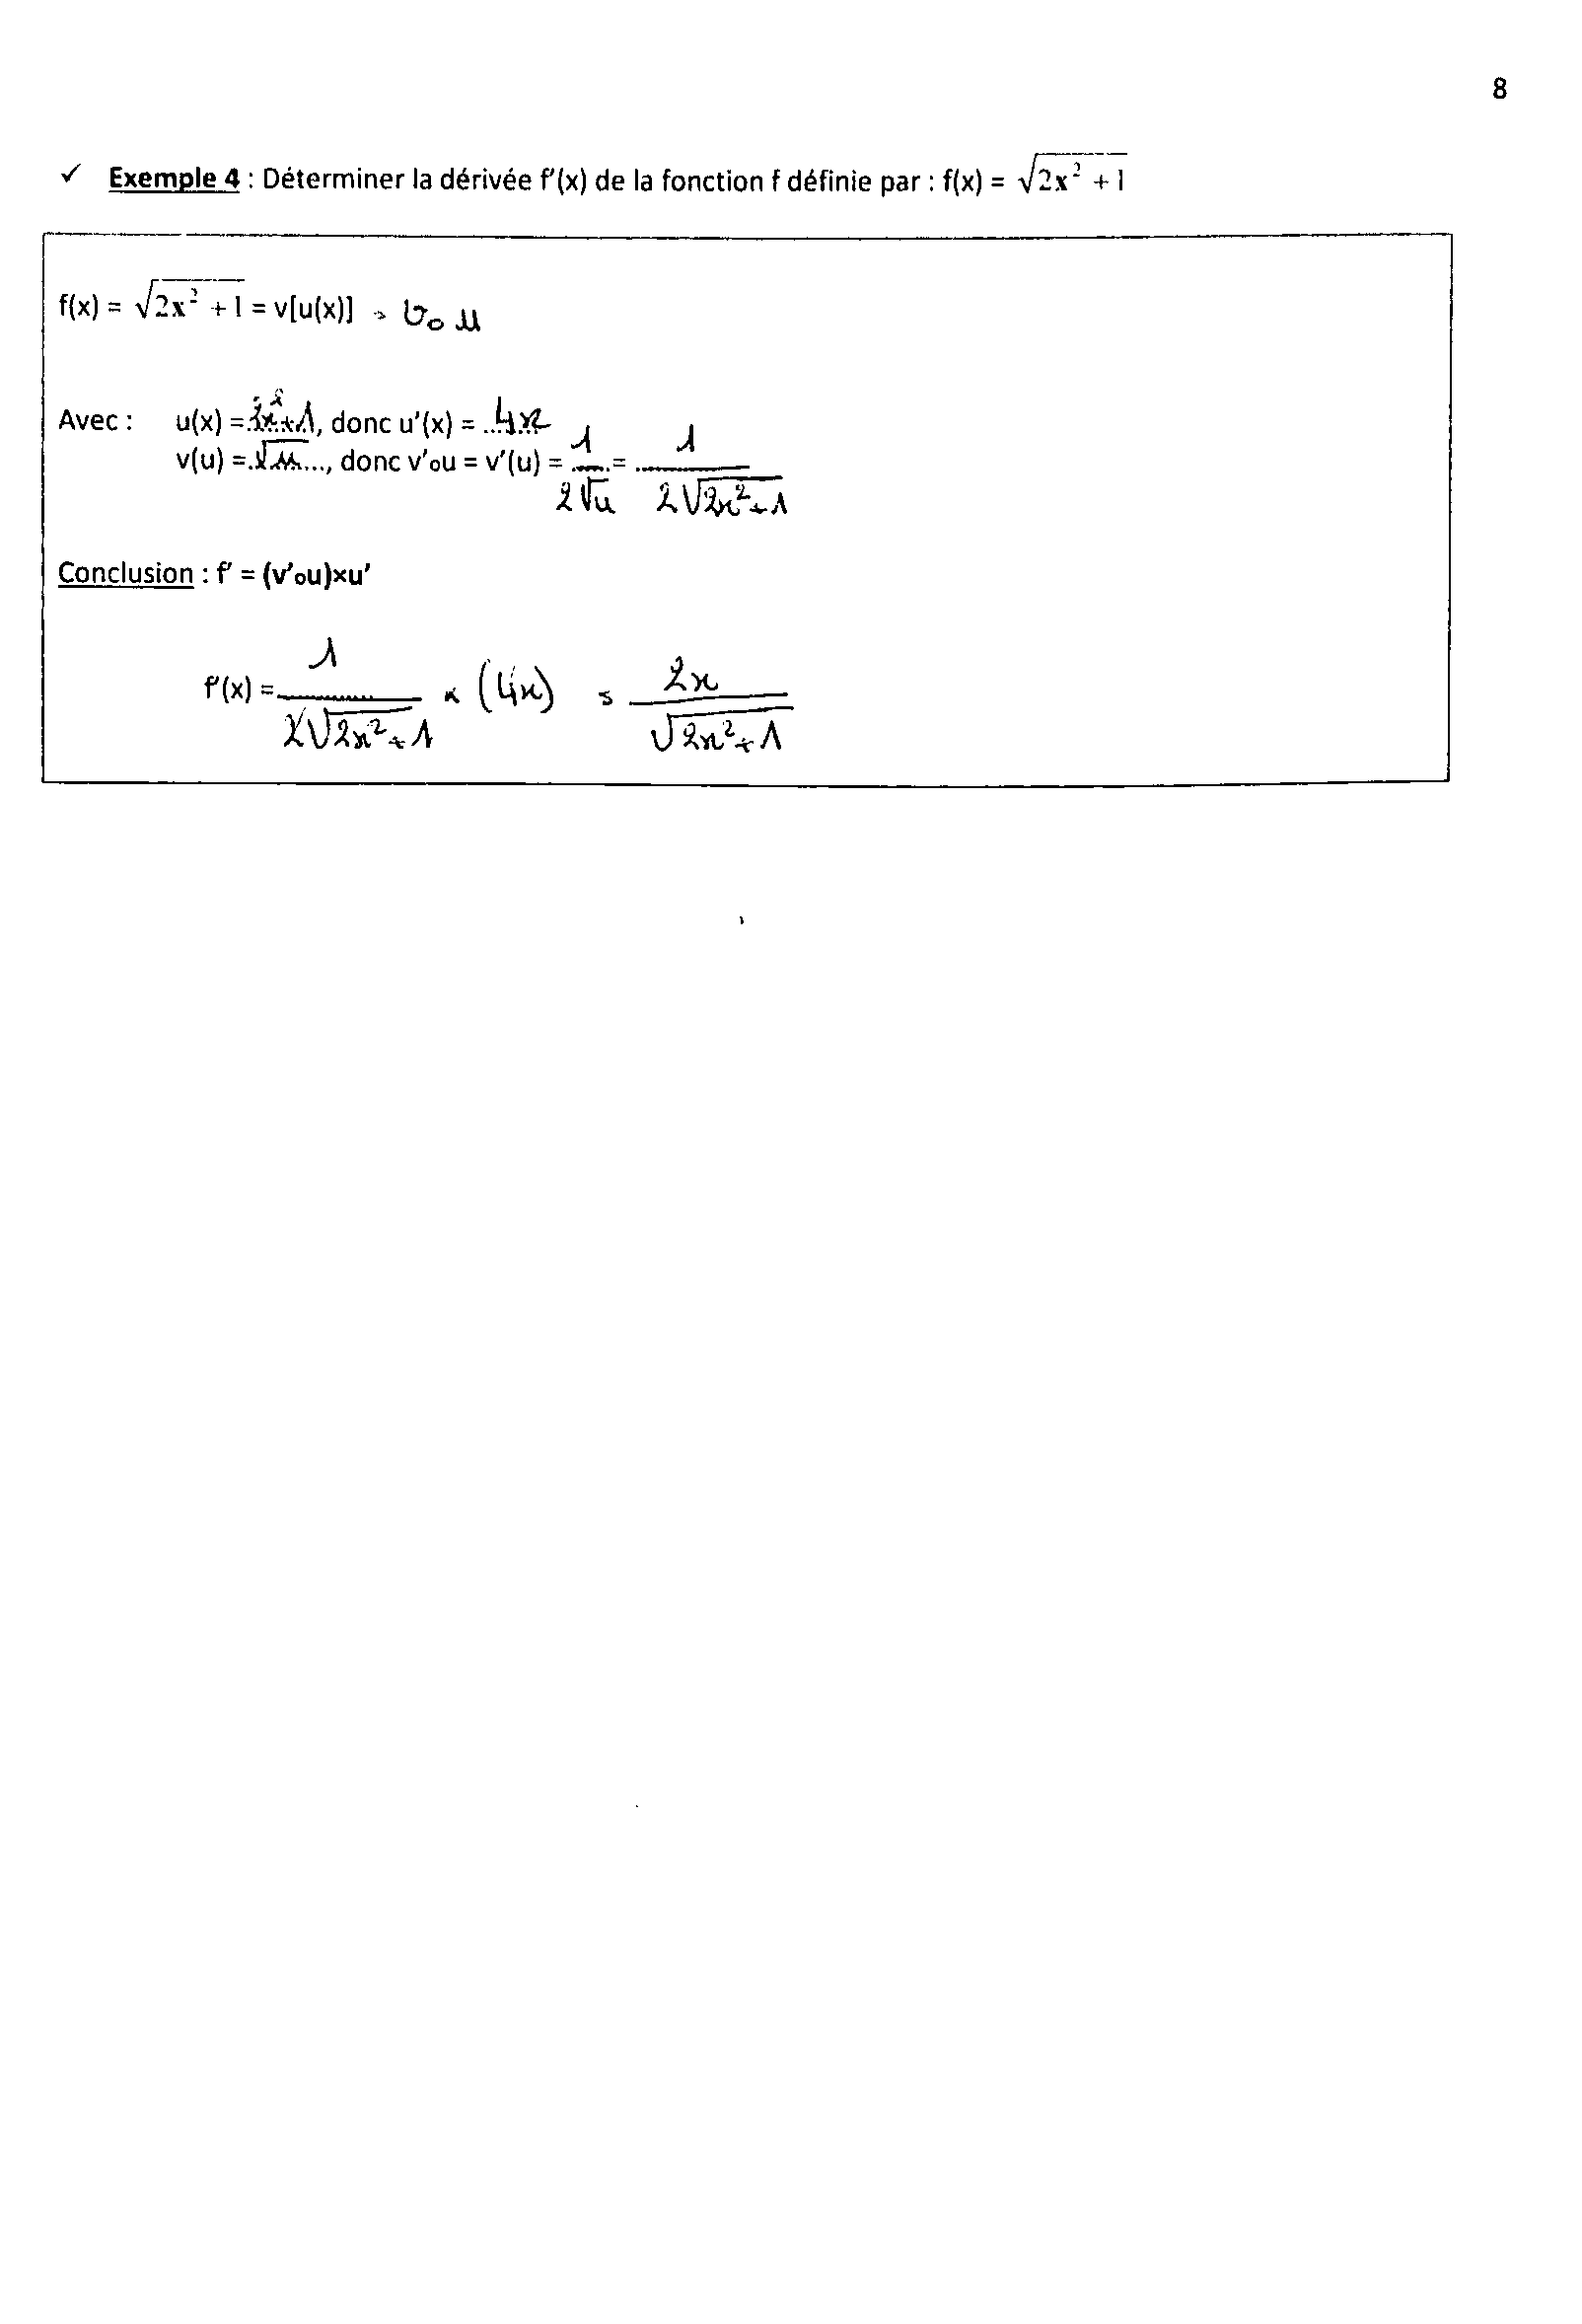 8
✓ Exemple 4 : Déterminer la dérivée f'(x) de la fonction f définie par : f(x) = √(2x² + 1)
f(x) = √(2x² + 1) = v[u(x)] = v∘u
Avec : u(x) = 2x²+1, donc u'(x) = 4x
v(u) = √u..., donc v'∘u = v'(u) = 1/(2√u) = 1/(2√(2x²+1))
Conclusion : f' = (v'∘u)×u'
f'(x) = 1/(2√(2x²+1)) × (4x) = 2x/√(2x²+1)